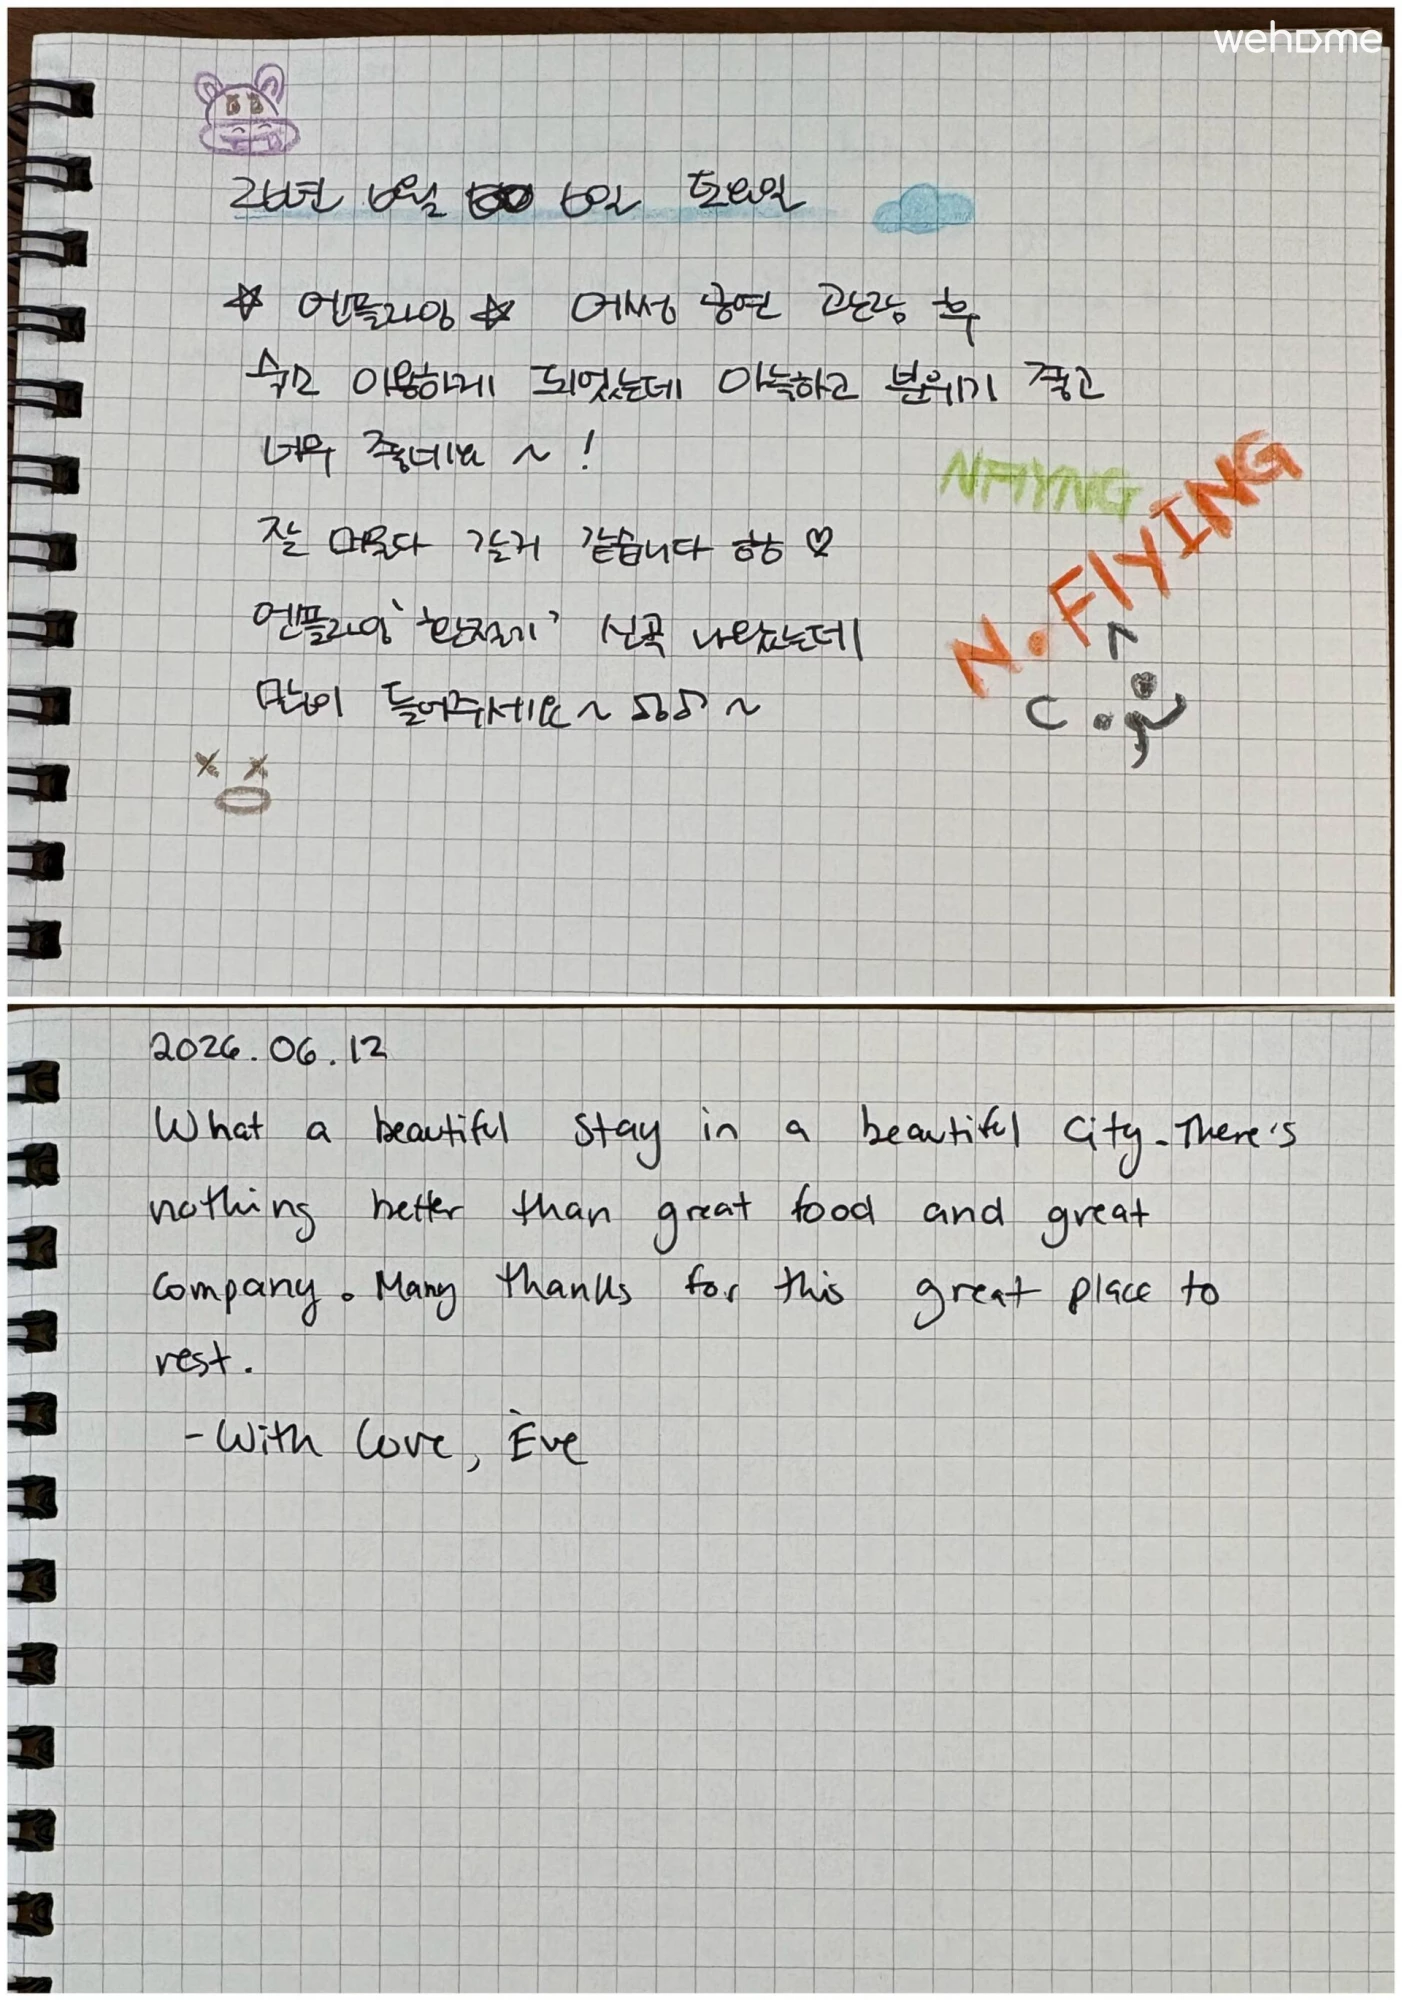 wehome
26년 6월 6일 토요일
☆ 엔플라잉 ☆ 어썸 공연 관람 후
숙소 이용하게 되었는데 아늑하고 분위기 좋고
너무 좋네요 ~ !
잘 머물다 갈거 같습니다 핳 ♡
엔플라잉 '' 신곡 나왔는데
많이 들어주세요 ~ ♫♪ ~
NFlYNG
N.FlYING
2026.06.12
What a beautiful stay in a beautiful city. There's
nothing better than great food and great
company. Many thanks for this great place to
rest.
- With love, Eve